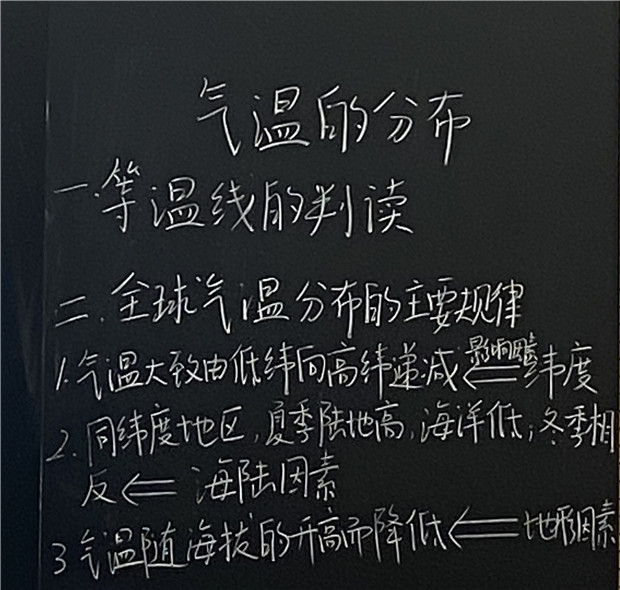 气温的分布
一.等温线的判读
二.全球气温分布的主要规律
1.气温大致由低纬向高纬递减 影响因素 ⇐ 纬度
2.同纬度地区,夏季陆地高,海洋低;冬季相
反 ⇐ 海陆因素
3气温随海拔的升高而降低 ⇐ 地形因素